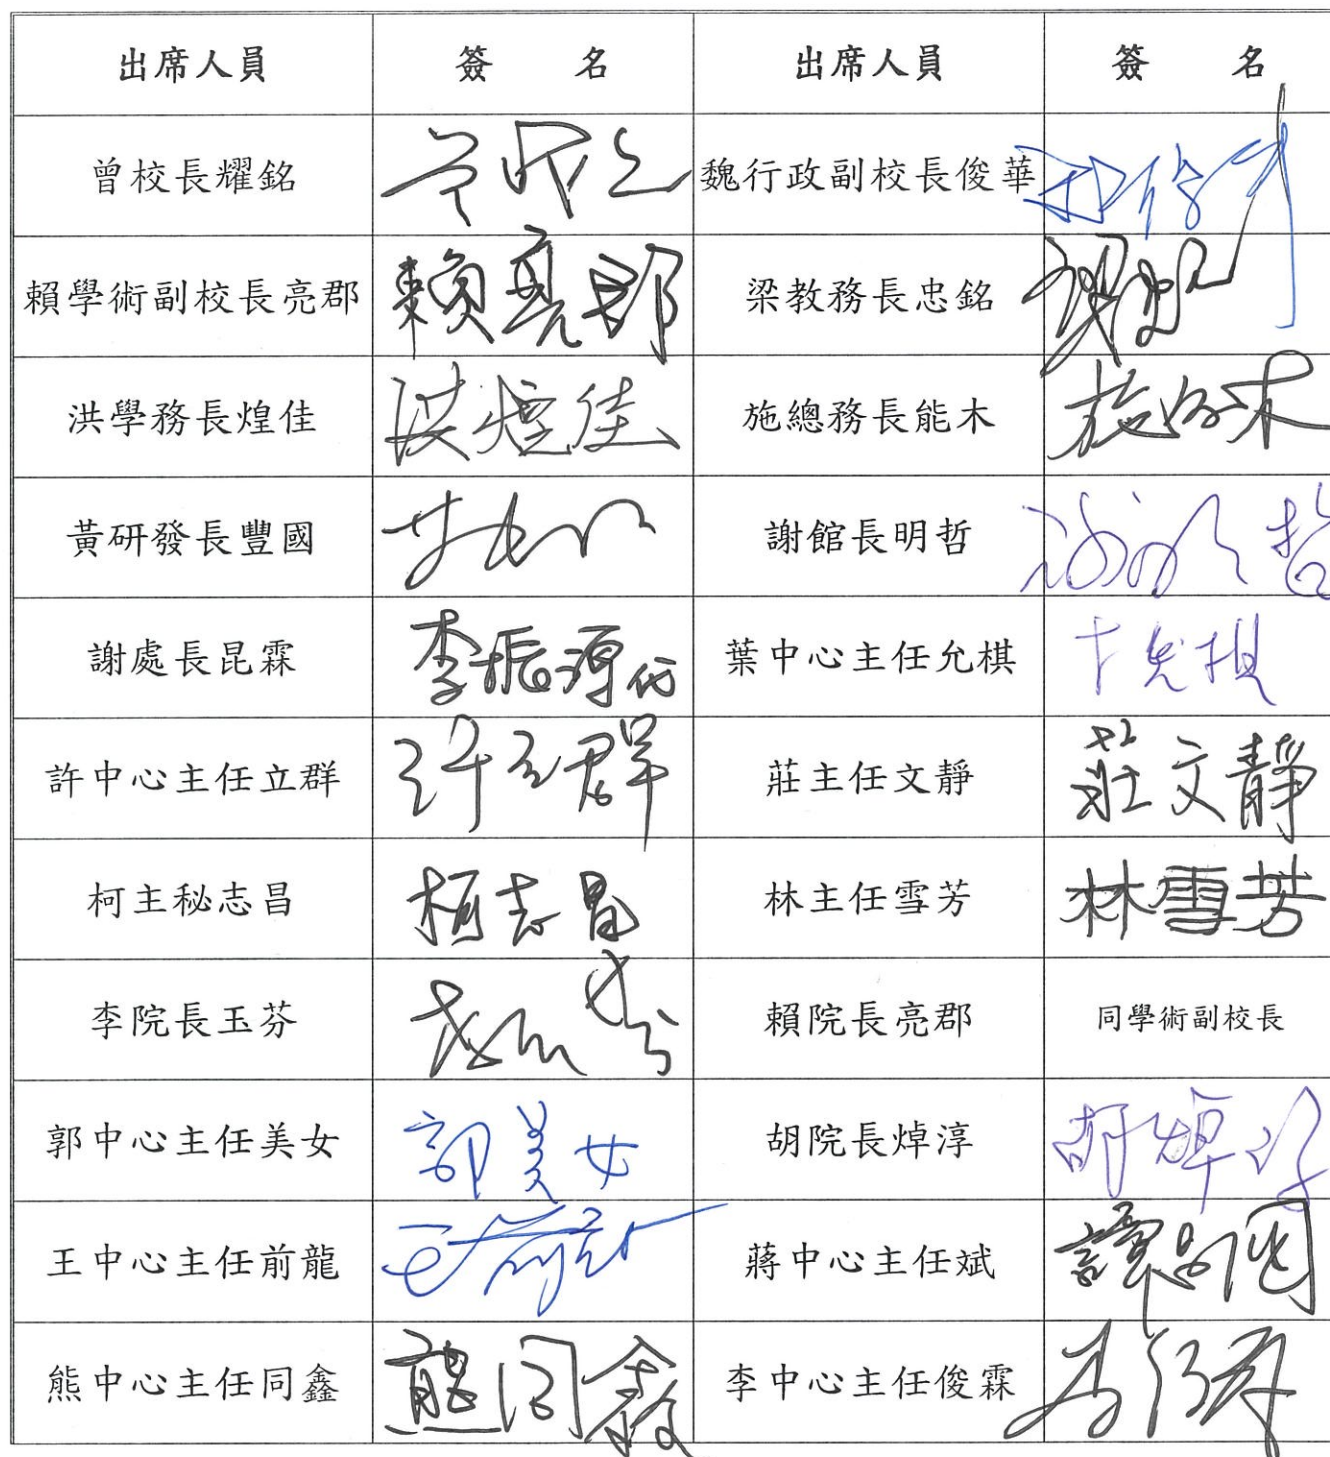 出席人員 簽 名 出席人員 簽 名
曾校長耀銘 魏行政副校長俊華
賴學術副校長亮郡 賴亮郡 梁教務長忠銘
洪學務長煌佳 洪煌佳 施總務長能木 施能木
黃研發長豐國 謝館長明哲 謝明哲
謝處長昆霖 李振源代 葉中心主任允棋
許中心主任立群 許立群 莊主任文靜 莊文靜
柯主秘志昌 柯志昌 林主任雪芳 林雪芳
李院長玉芬 賴院長亮郡 同學術副校長
郭中心主任美女 郭美女 胡院長焯淳 胡焯淳
王中心主任前龍 蔣中心主任斌
熊中心主任同鑫 熊同鑫 李中心主任俊霖